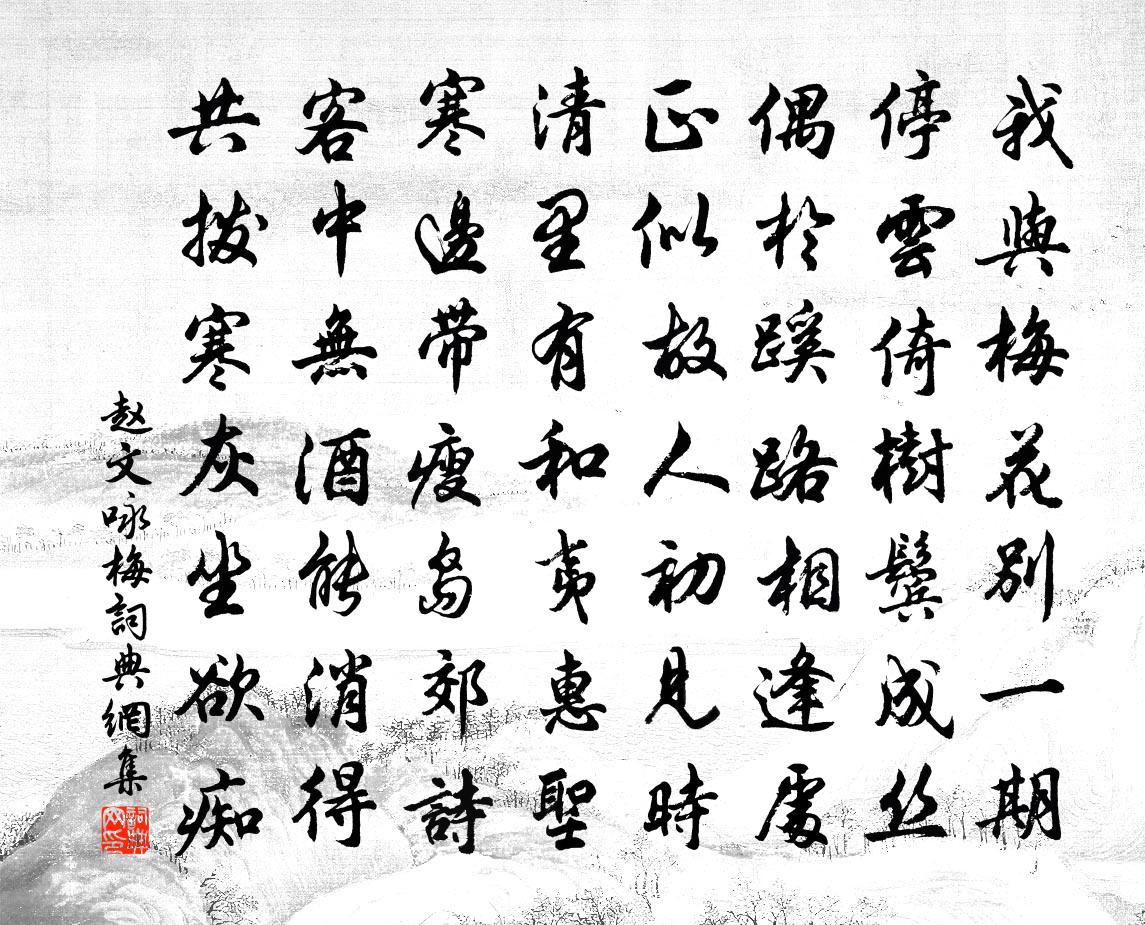 我與梅花別一期
停雲倚樹鬢成丝
偶於蹊路相逢處
正似故人初見時
清里有和夷惠聖
寒邊帶瘦島郊詩
客中無酒能消得
共撥寒灰坐欲痴
赵文咏梅詞典網集